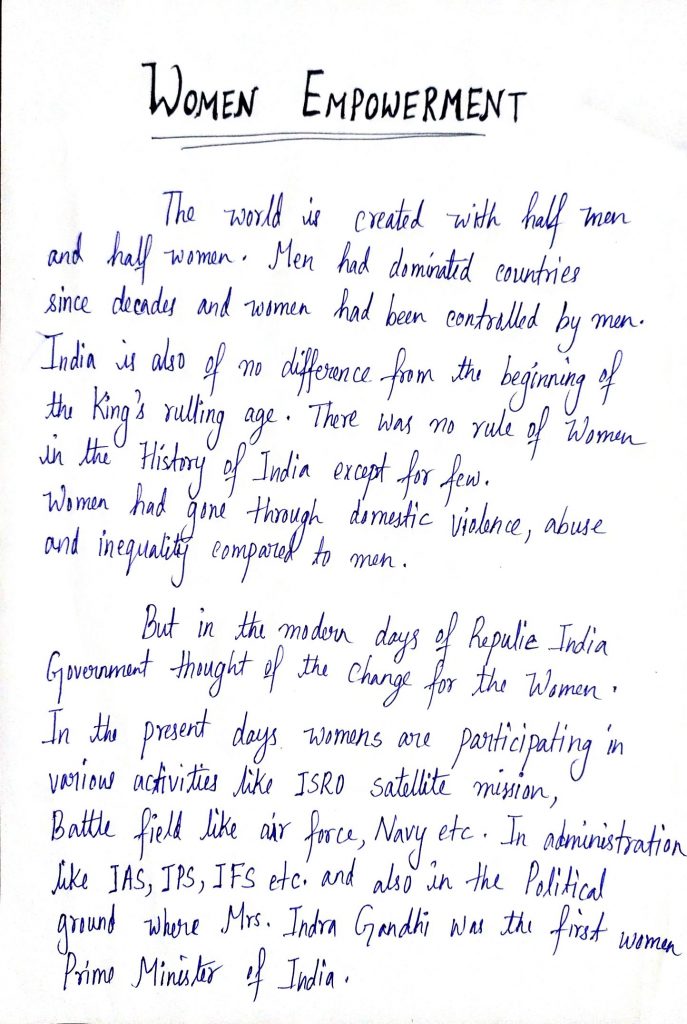 WOMEN EMPOWERMENT
The world is created with half men
and half women. Men had dominated countries
since decades and women had been controlled by men.
India is also of no difference from the beginning of
the King's rulling age. There was no rule of Women
in the History of India except for few.
Women had gone through domestic violence, abuse
and inequality compared to men.
But in the modern days of Repulic India
Government thought of the change for the Women.
In the present days womens are participating in
various activities like ISRO satellite mission,
Battle field like air force, Navy etc. In administration
like IAS, IPS, IFS etc. and also in the Political
ground where Mrs. Indra Gandhi was the first women
Prime Minister of India.